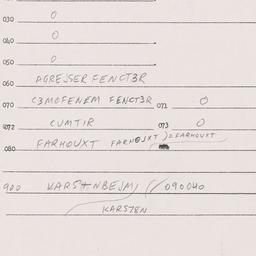 030 0
040 0
050 0
060 AGRESSER FENCT3R
070 C3MOFENEM FENCT3R 071 0
072 CUMTIR 073 0
080 FARHOUXT FARHOUXT)=FARHOUXT
900 090040
KARSTEN